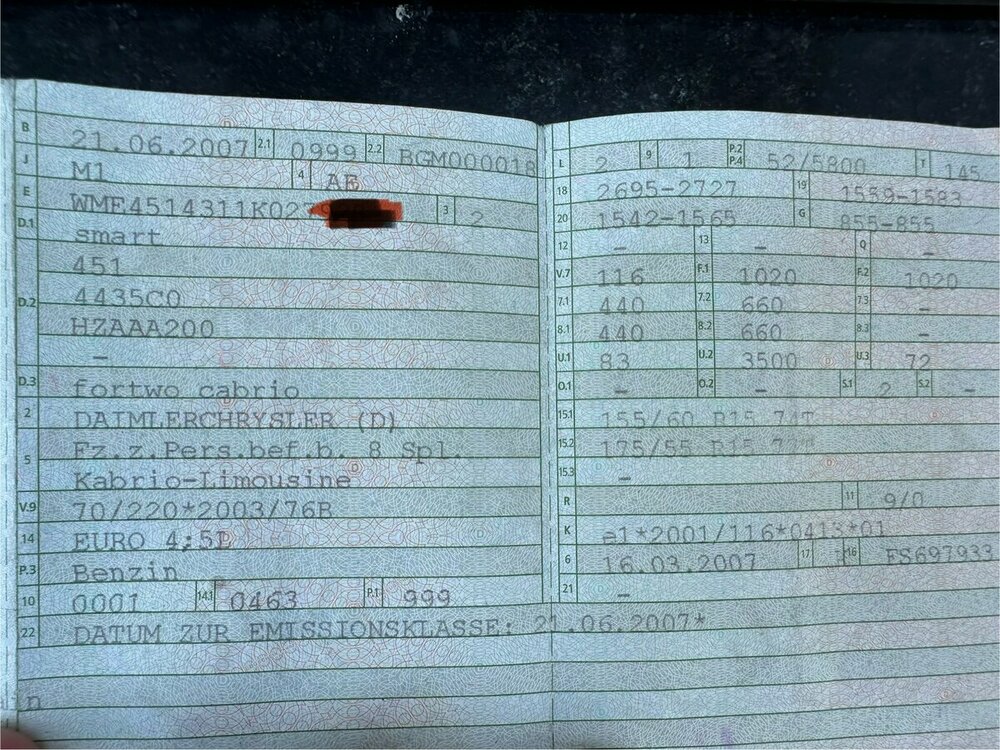 B 21.06.2007 2.1 0999 2.2 BGM000018
J M1 4 AE
E WME4514311K02 3 2
D.1 smart
451
D.2 4435C0
HZAAA200
–
D.3 fortwo cabrio
2 DAIMLERCHRYSLER (D)
5 Fz.z.Pers.bef.b. 8 Spl.
Kabrio-Limousine
V.9 70/220*2003/76B
14 EURO 4;5L
P.3 Benzin
10 0001 14.1 0463 P.1 999
22 DATUM ZUR EMISSIONSKLASSE: 21.06.2007*
L 2 9 1 P.2 P.4 52/5800 T 145
18 2695-2727 19 1559-1583
20 1542-1565 G 855-855
12 – 13 – Q –
V.7 116 F.1 1020 F.2 1020
7.1 440 7.2 660 7.3 –
8.1 440 8.2 660 8.3 –
U.1 83 U.2 3500 U.3 72
O.1 – O.2 – S.1 2 S.2 –
15.1 155/60 R15 74T
15.2 175/55 R15
15.3 –
R 11 9/0
K e1*2001/116*0413*01
6 16.03.2007 17 16 FS697933
21 –